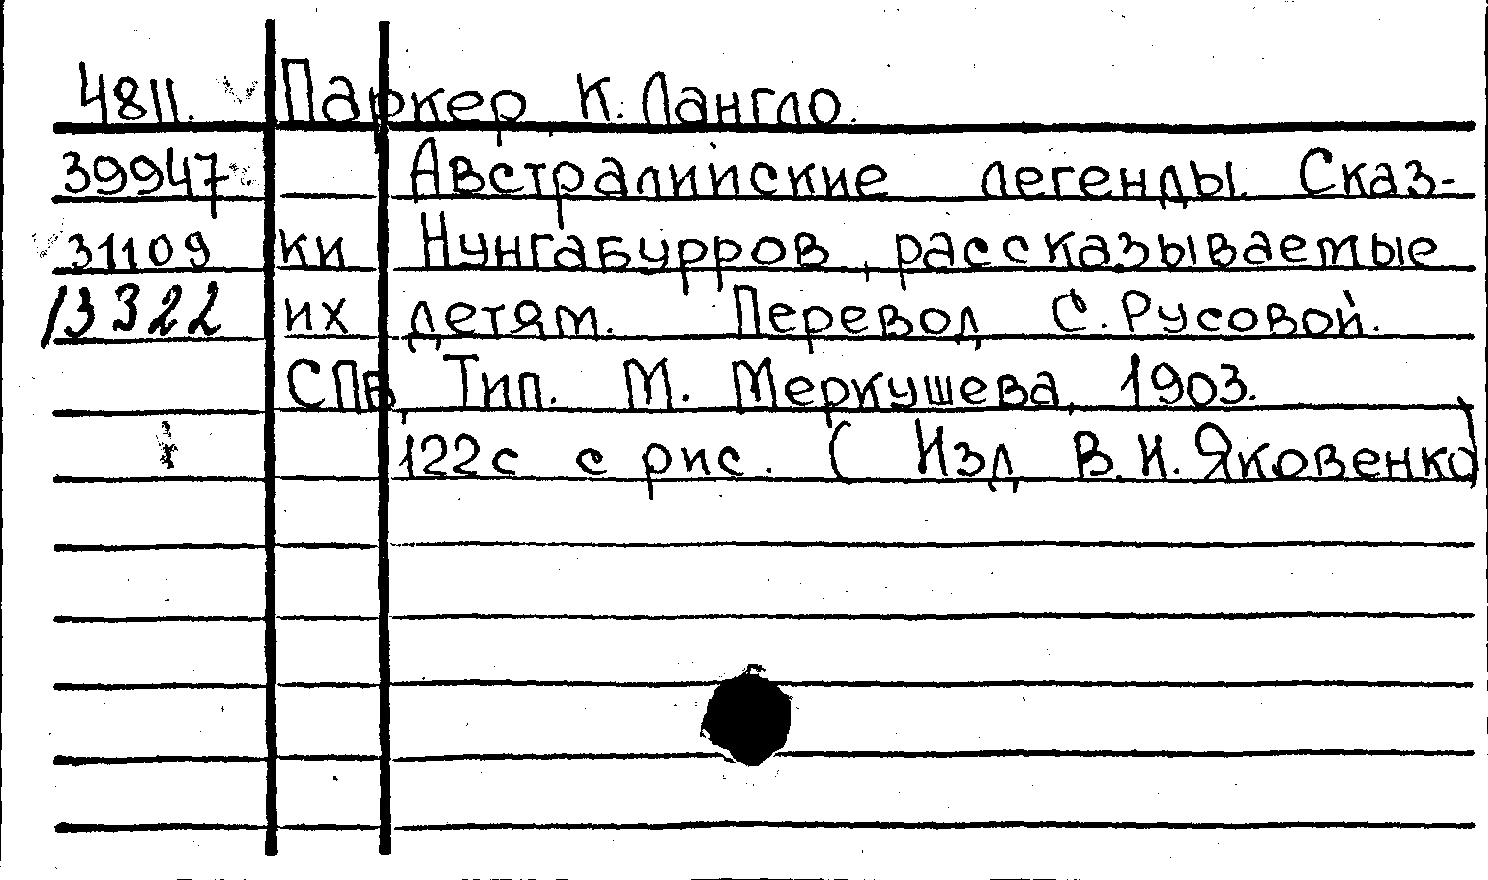 4811. Паркер К. Лангло.
39947 Австралийские легенды. Сказ-
31109 ки Нунгабурров, рассказываемые
13322 их детям. Перевод С. Русовой.
СПб, Тип. М. Меркушева, 1903.
122с с рис. (Изд. В. И. Яковенко)